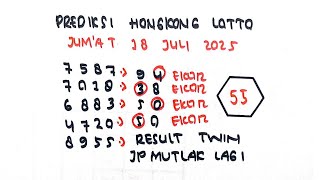 PREDIKSI HONGKONG LOTTO
JUM'AT 18 JULI 2025
7587 : 94 EKOR
7028 : 38 EKOR
6883 : 50 EKOR
4720 : 50 EKOR
8955 : RESULT TWIN
JP MUTLAK LAGI
55